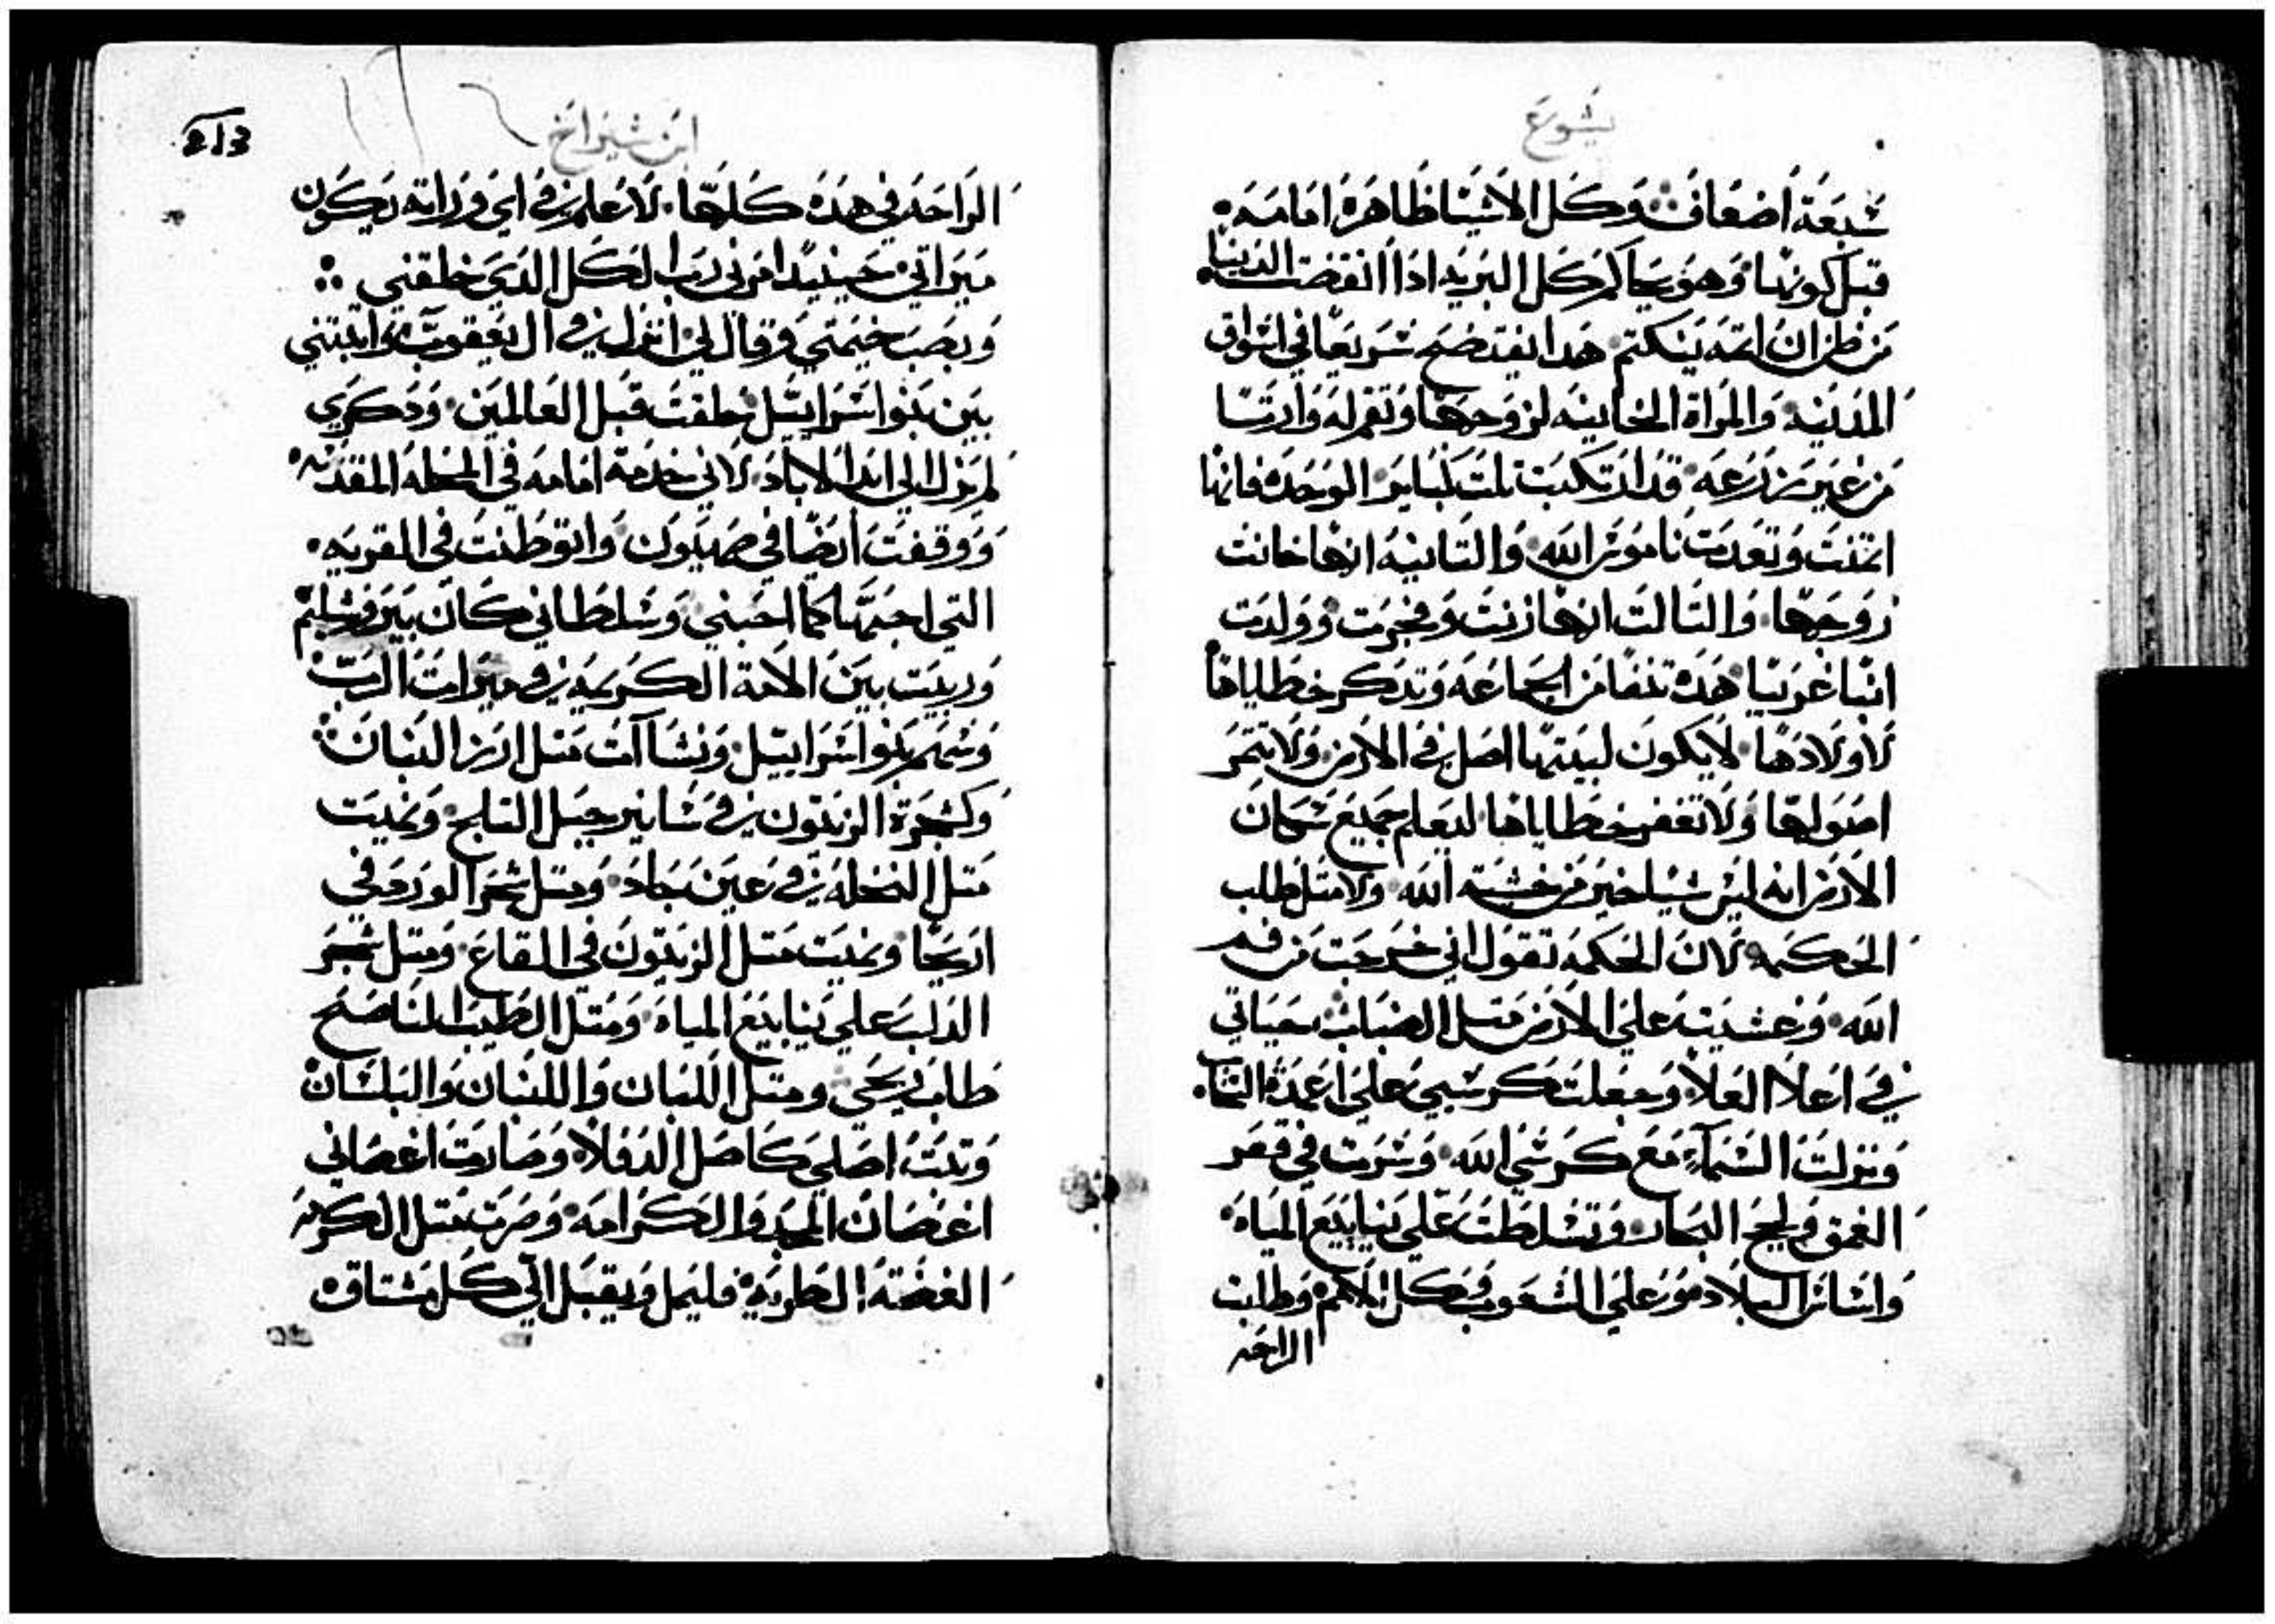 يشوع
سبعة اضعاف وكل الاشيا ظاهره امامه
قبل كونها وهو يحاكم كل البريه اذا انقضت الدنيا
من ظن ان اتمه ينكتم هدا يفتضح سريعا في اسواق
المدينه والمراة الخاينه لزوجها وتقم له وارتا
من غير زرعه قد ارتكبت تلت كباير الوحده فانها
اتمت وتعدت ناموس الله والتانيه انها خانت
زوجها والتالت انها زنت وفجرت وولدت
ابنا غريبا هده تنفا من الجماعه وتدكر خطاياها
لاولادها لايكون لبيتها اصل في الارض ولا يتمر
اصولها ولا تغفر خطاياها ليعلم جميع سكان
الارض انه ليس شيا خير من خشيته الله ولا متل طلب
الحكمه لان الحكمه تقول اني خرجت من فم
الله وغشيت علي الارض متل الضباب حياتي
في اعلا العلا وجعلت كرسيي علي اعمدة السما
ونزلت السماء مع كرسي الله وسرت في قعر
الغمق ولجج البحار وتسلطت علي ينابيع المياه
واساس البلاد مور علي الشعوب وكل الامم وطلبت
الراحه
ابن شيراخ
213
الراحه في هده كلها لاعلم في اي وراته يكون
ميراتي حينيدا امرني رب الكل الدي خلقني
ونصب خيمتي وقال لي انزل في ال يعقوب واتبتني
بين بنوا اسراييل خلقت قبل العالمين ودكري
لم يزل الي ابد الاباد لاني خدمة امامه في الحله المقدسه
ووقفت ايضا في صهيون واتوطنت في القريه
التي احبتها كما احبني وسلطاني كان بيروشليم
وربيت بين الامة الكريمه في ميرات الرب
وسهم بنوا اسراييل ونشاات متل ارز البنان
وكشجرة الزيتون في سانير جبل التلج ونميت
متل النخله في عين جاد ومتل شجر الورد في
اريحا ونميت متل الزيتون في القاع ومتل شجر
الدلب علي ينابيع المياه ومتل الطيب الناضح
طاب ريحي ومتل اللبان واللبنان والبلسان
وتبت اصلي كاصل الدفلا وصارت اغصاني
اغصان المجد والكرامه وصرت متل الكرمه
الغضته الطريه فليمل ويقبل الي كل مشتاقه